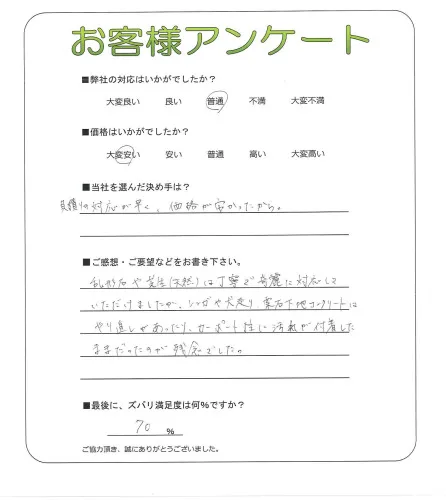 お客様アンケート
■弊社の対応はいかがでしたか?
大変良い 良い 普通 不満 大変不満
■価格はいかがでしたか?
大変安い 安い 普通 高い 大変高い
■当社を選んだ決め手は?
見積りの対応が早く、価格が安かったから。
■ご感想・ご要望などをお書き下さい。
乱形石や芝生(天然)は丁寧で綺麗に対応して
いただけましたが、レンガや犬走り 下地コンクリートは
やり直しがあったり、カーポート柱に汚れが付着した
ままだったのが残念でした。
■最後に、ズバリ満足度は何%ですか?
70 %
ご協力頂き、誠にありがとうございました。